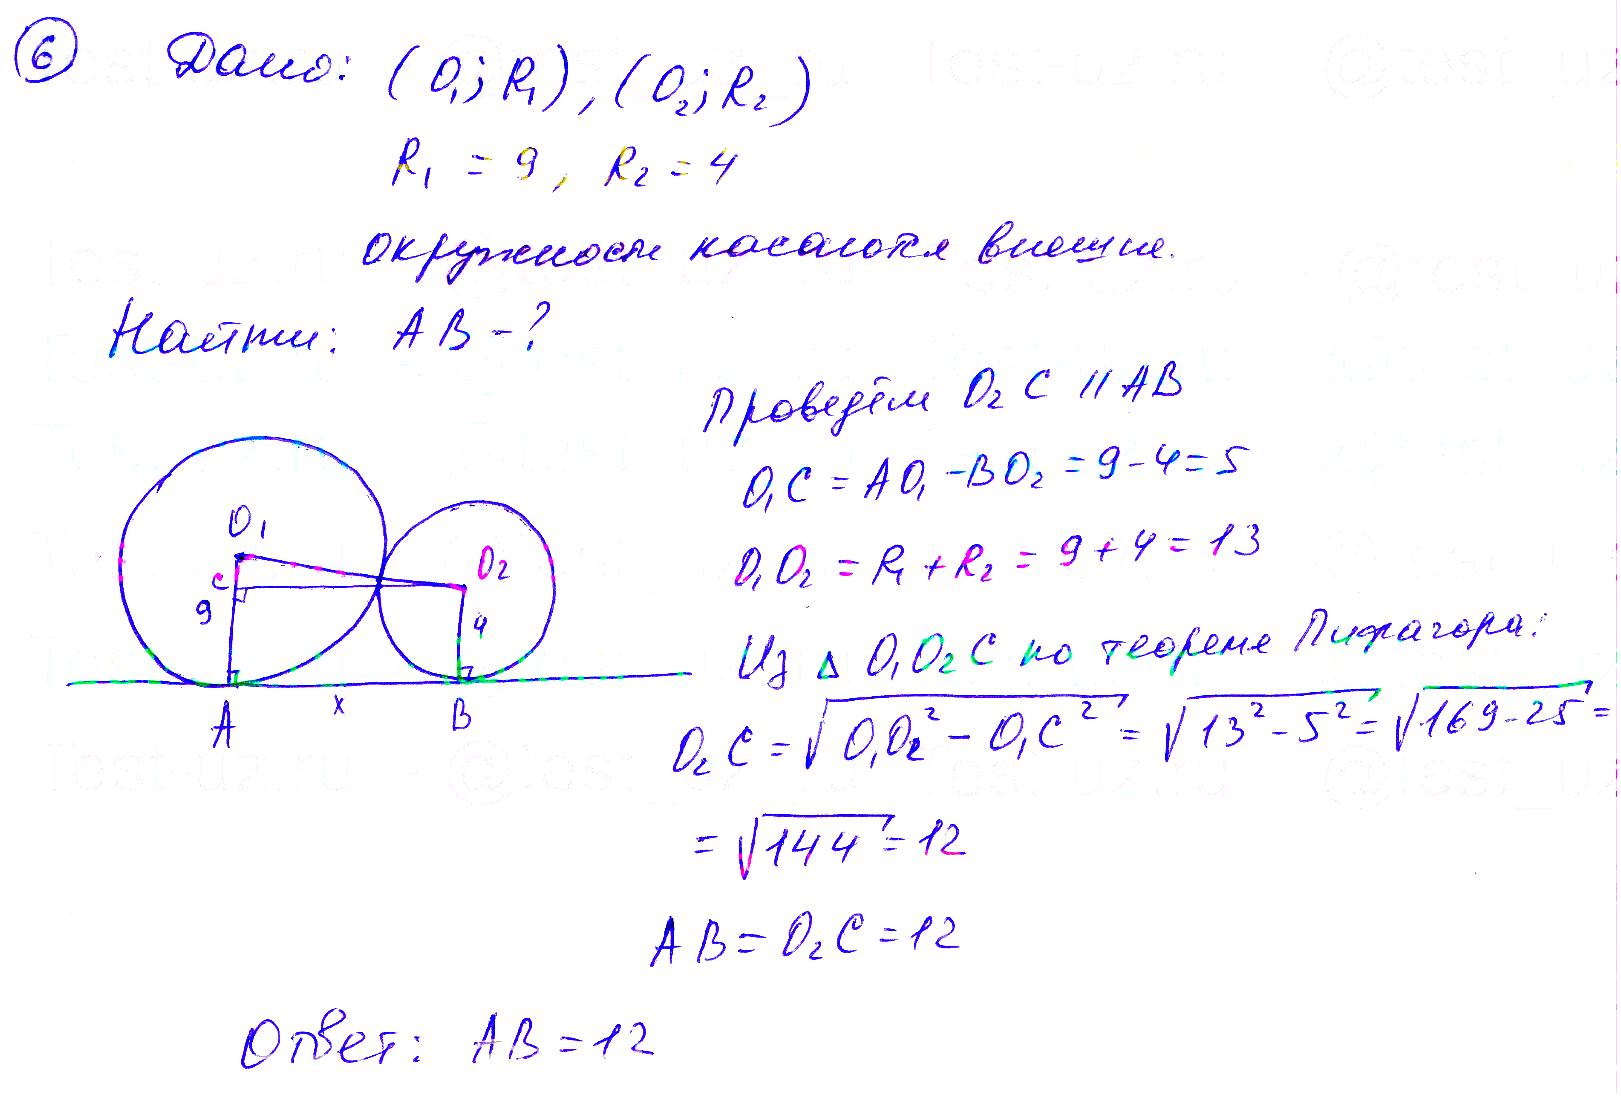 6 Дано: (O₁; R₁), (O₂; R₂)
R₁ = 9, R₂ = 4
окружности касаются внешне.
Найти: AB - ?
Проведём O₂C || AB
O₁C = AO₁ - BO₂ = 9 - 4 = 5
O₁O₂ = R₁ + R₂ = 9 + 4 = 13
Из Δ O₁O₂C по теореме Пифагора:
O₂C = √(O₁O₂² - O₁C²) = √(13² - 5²) = √(169 - 25) =
= √144 = 12
AB = O₂C = 12
Ответ: AB = 12
O₁
C
O₂
9
4
A
x
B